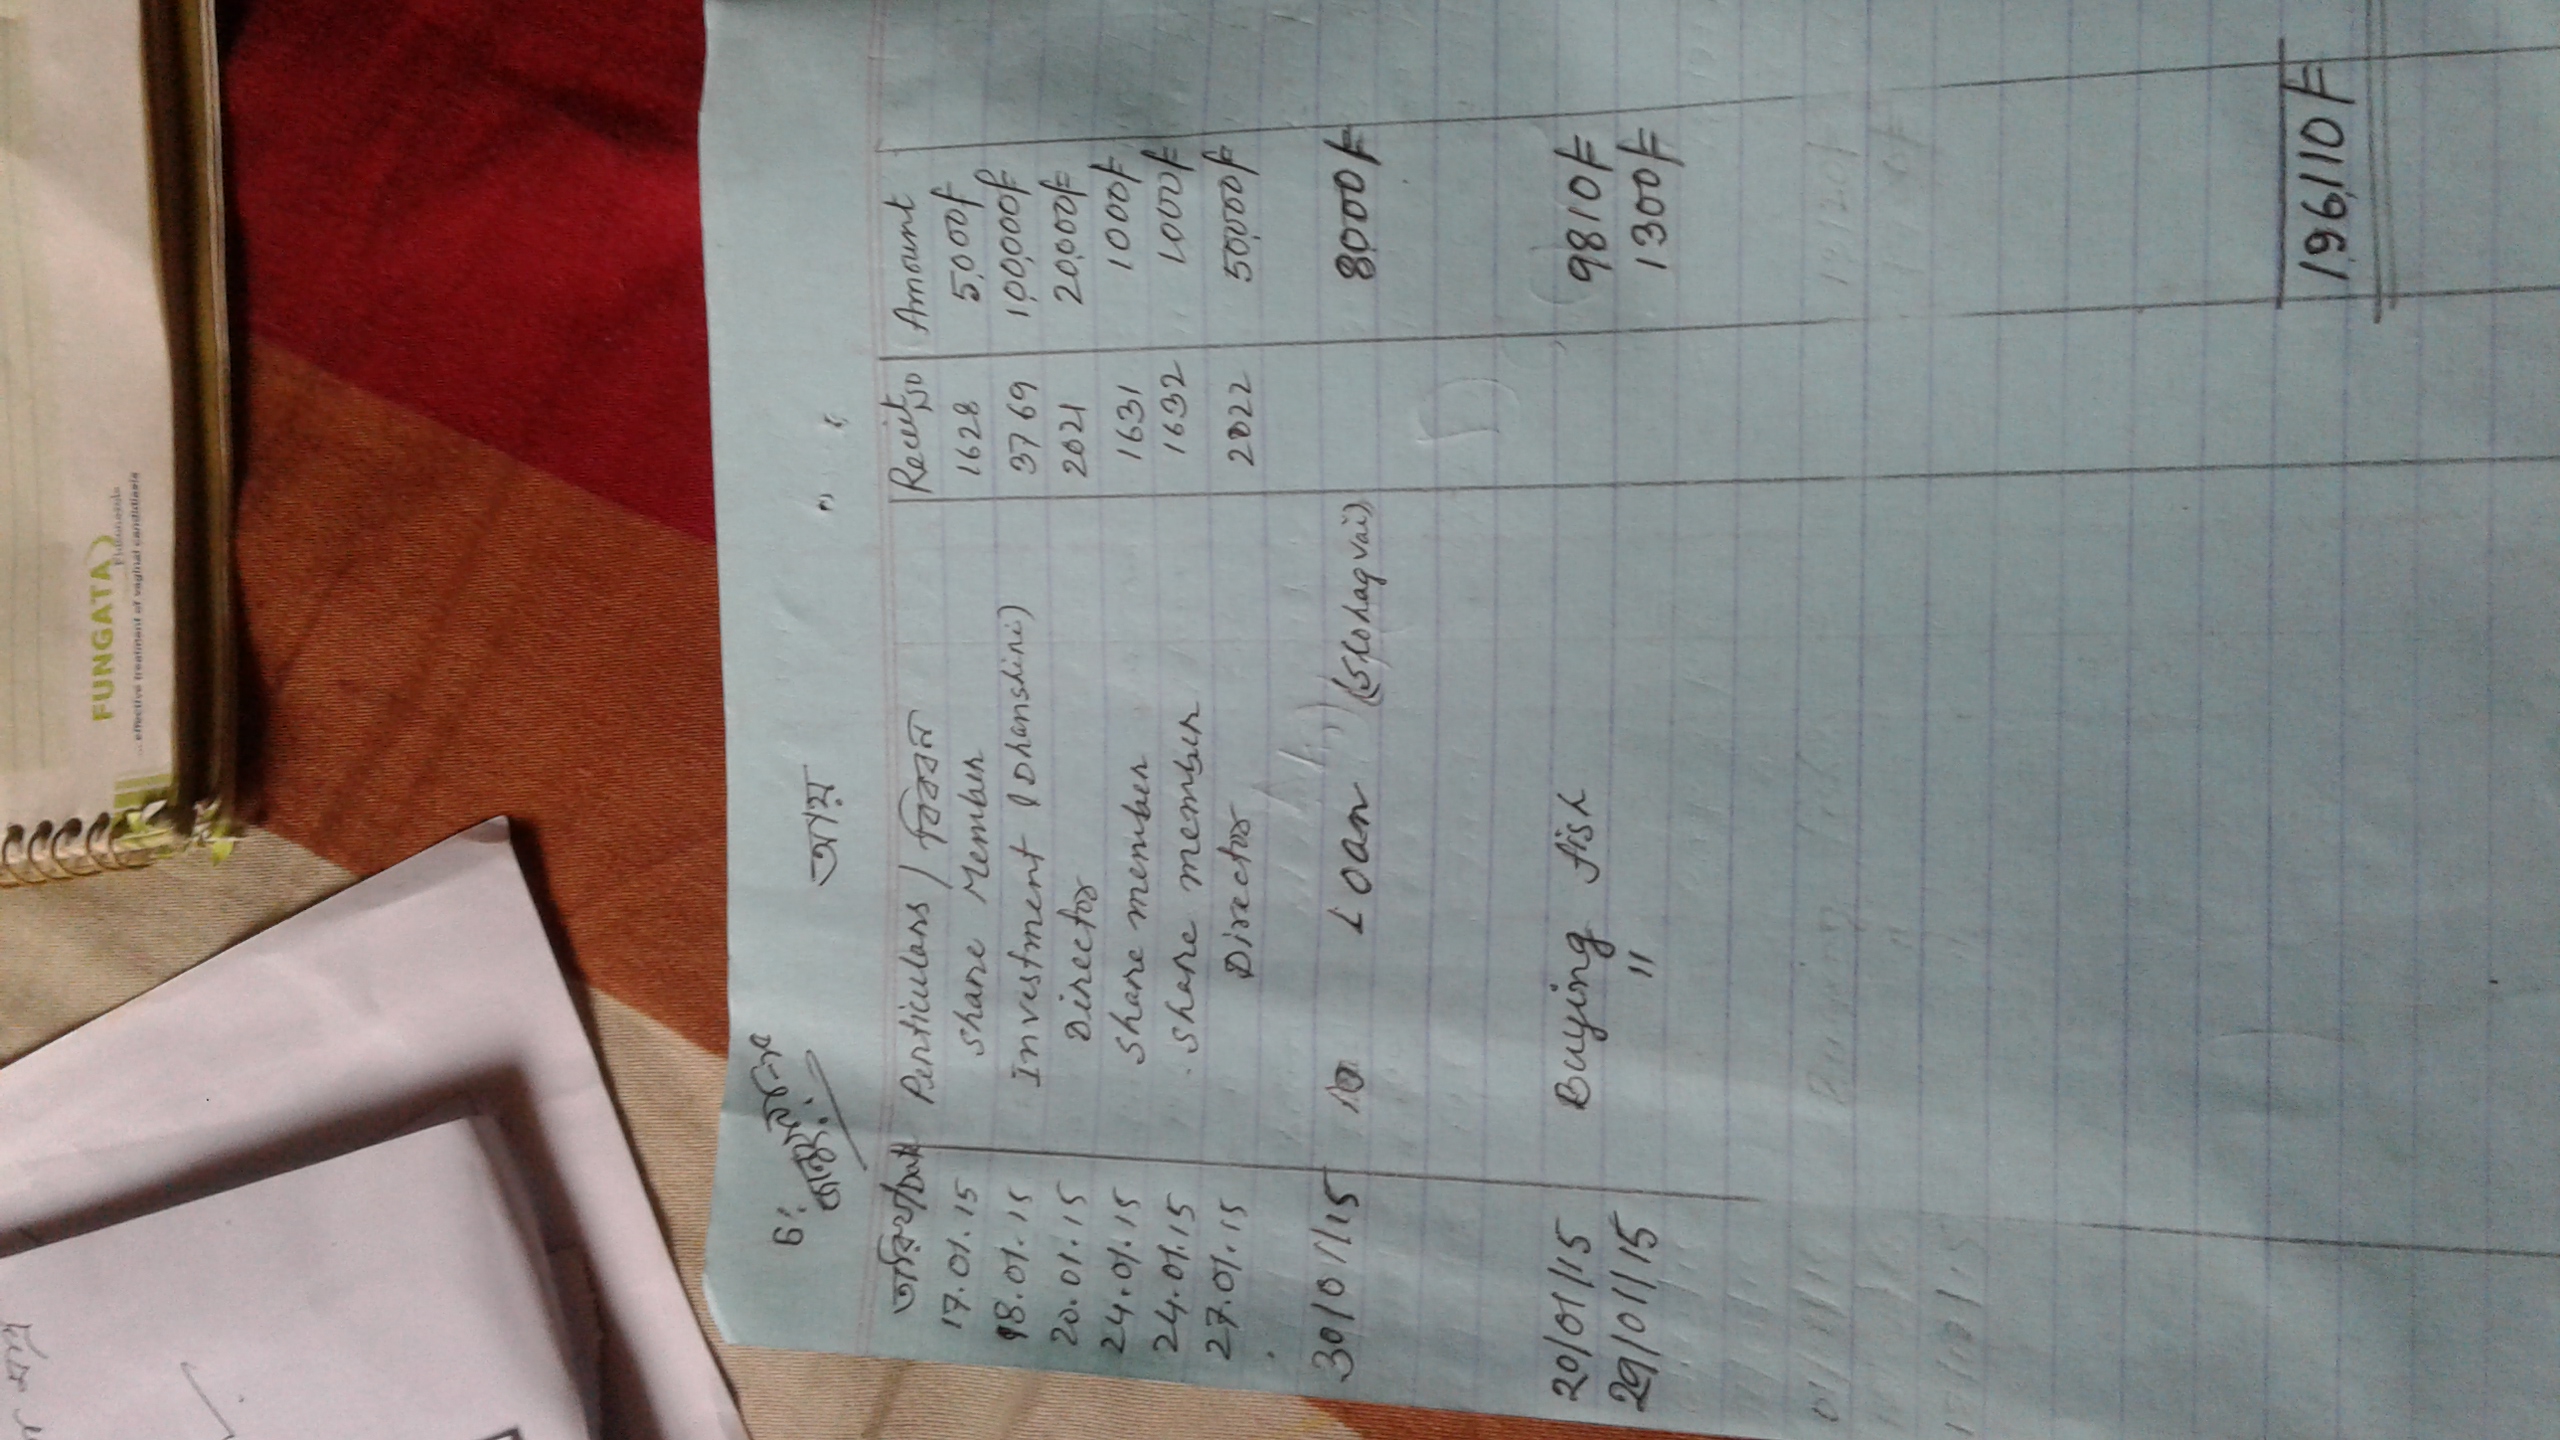 FUNGATA
Fluconazole
... effective treatment of vaginal candidiasis
আয়
তারিখ/Date Perticulars / বিবরন Receit No Amount
17.01.15 Share Member 1628 5,000/=
18.01.15 Investment (Dhanshiri) 3769 1,00,000/=
20.01.15 Director 2021 20,000/=
24.01.15 Share member 1631 1000/=
24.01.15 Share member 1632 1000/=
27.01.15 Director 2022 50,000/=
30/01/15 Loan (Shohag vai) 8000/=
20/01/15 Buying fish 9810/=
29/01/15 " 1300/=
Buying fish
1,96,110/=